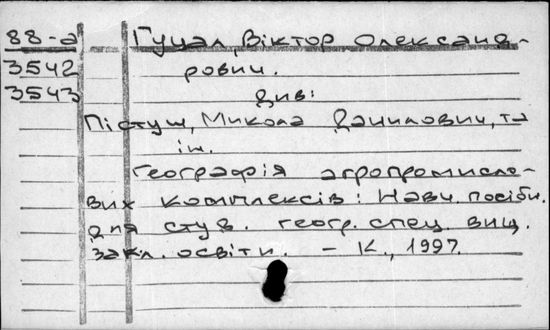 88-а Гуцал, Віктор Олександ-
3542 рович.
3543 див:
Пістун, Микола Данилович, та
ін.
Географія агропромисло-
вих комплексів: Навч. посібн.
для студ. геогр. спец. вищ.
закл. освіти. – К., 1997.